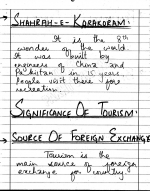 → SHAHRAH-E-KARAKORAM:
It is the 8th
wonder of the world.
It was built by
engineers of China and
Pakistan in 15 years.
People visit there for
recreation.
SIGNIFICANCE OF TOURISM:
→ SOURCE OF FOREIGN EXCHANGE
Tourism is the
main source of foreign
exchange for country.